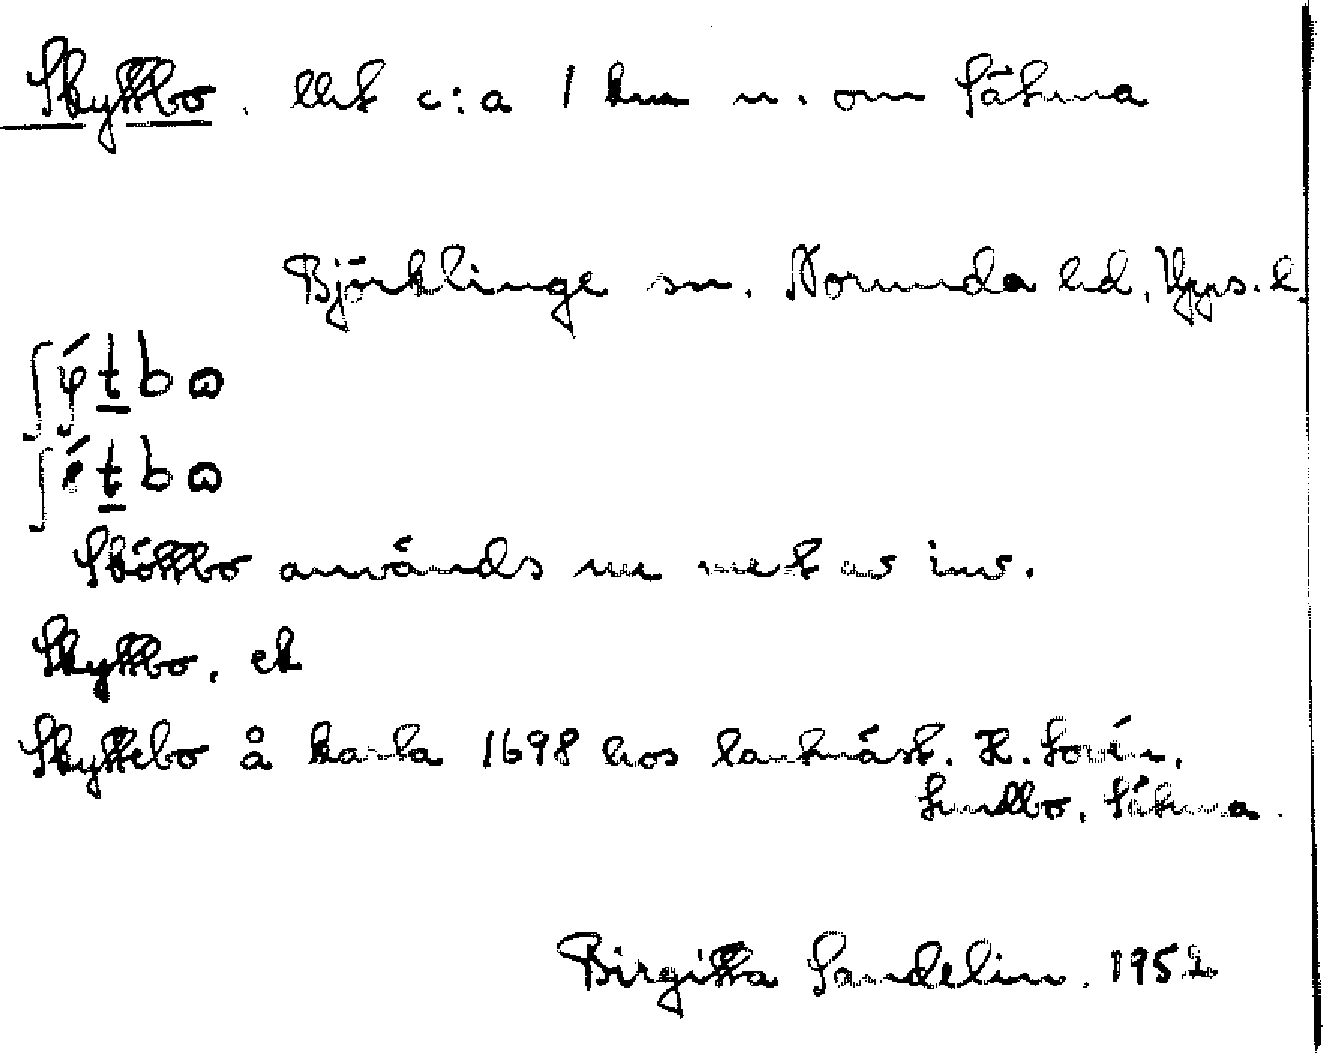 Skyttbo. llht c:a 1 km n. om Sätuna
Björklinge sn. Norunda hd, Upps. l.
ʃý̱tbω
ʃétbω
Sköttbo används nu mest av inv.
Skyttbo. ek
Skyttebo å karta 1698 hos lantmäst. K. Lovén,
Lundbo, Sätuna.
Birgitta Sandelin. 1952